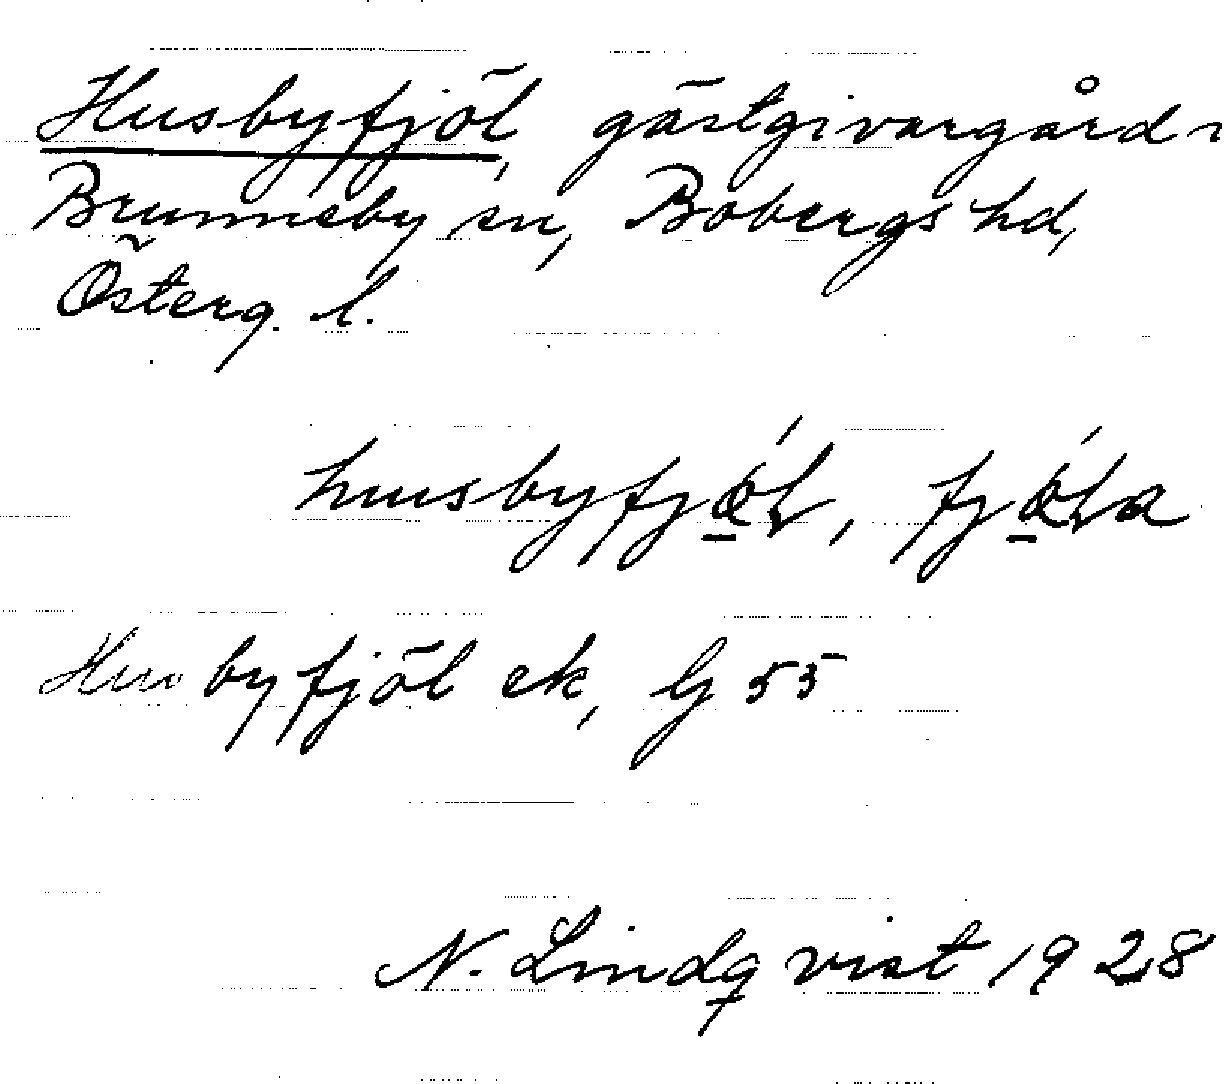 Husbyfjöl, gästgivargård i
Brunneby sn, Bobergs hd,
Österg. l.
husbyfjǿ̱ɫ, fjǿ̱ɫa
Husbyfjöl ek, G 55
N. Lindqvist 1928